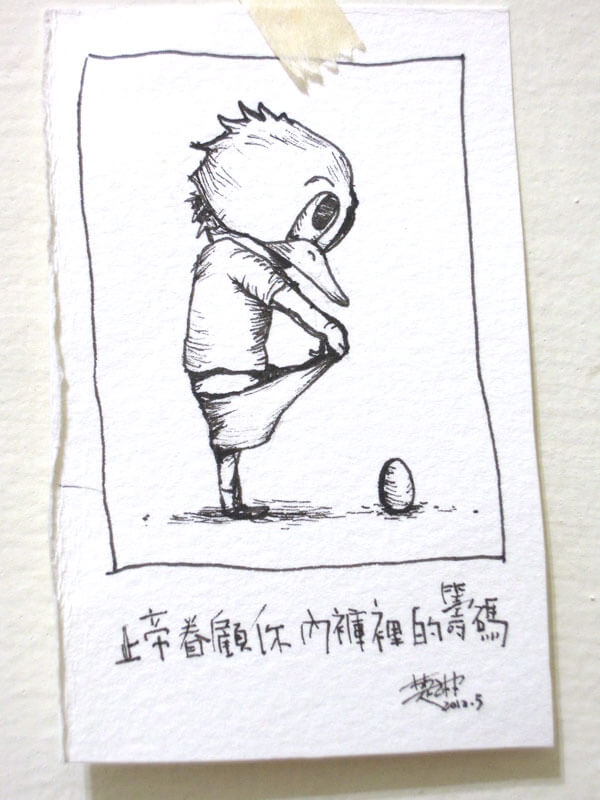 上帝眷顧你內褲裡的籌碼
2012.5